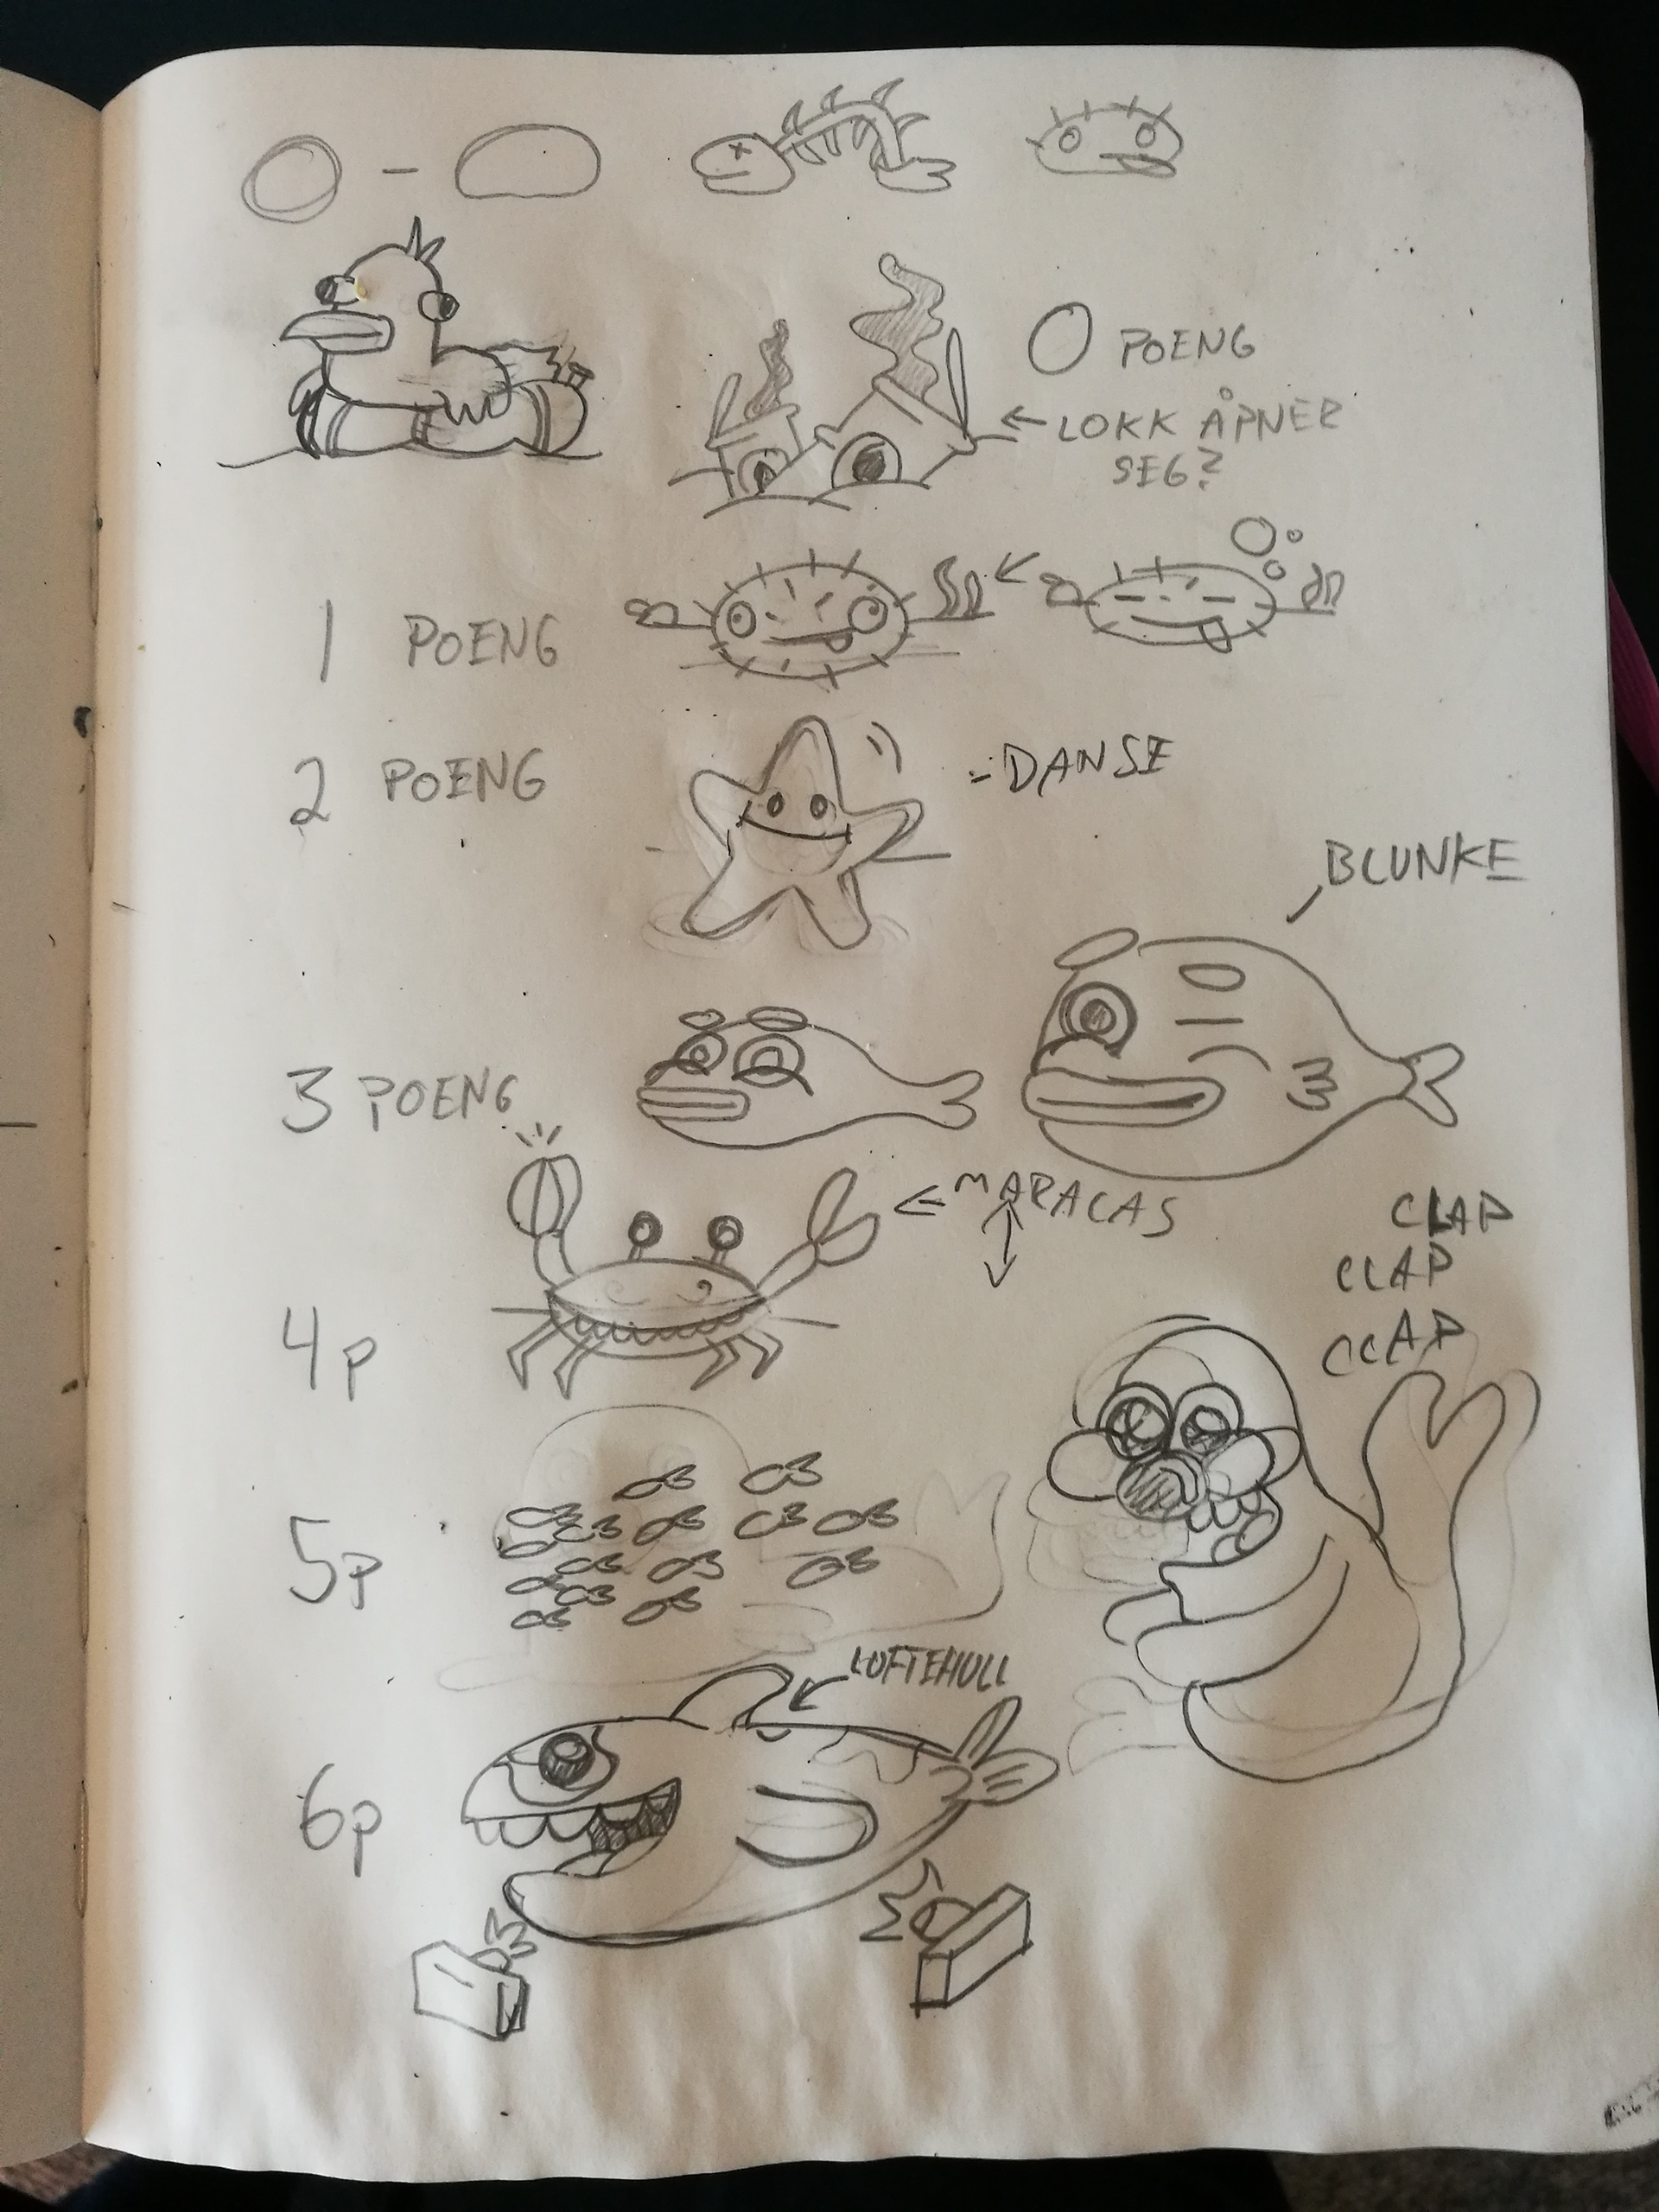 0 POENG
← LOKK ÅPNER
SEG?
1 POENG
2 POENG
- DANSE
BLUNKE
3 POENG
← MARACAS
CLAP
CLAP
CLAP
4p
5p
LUFTEHULL
6p